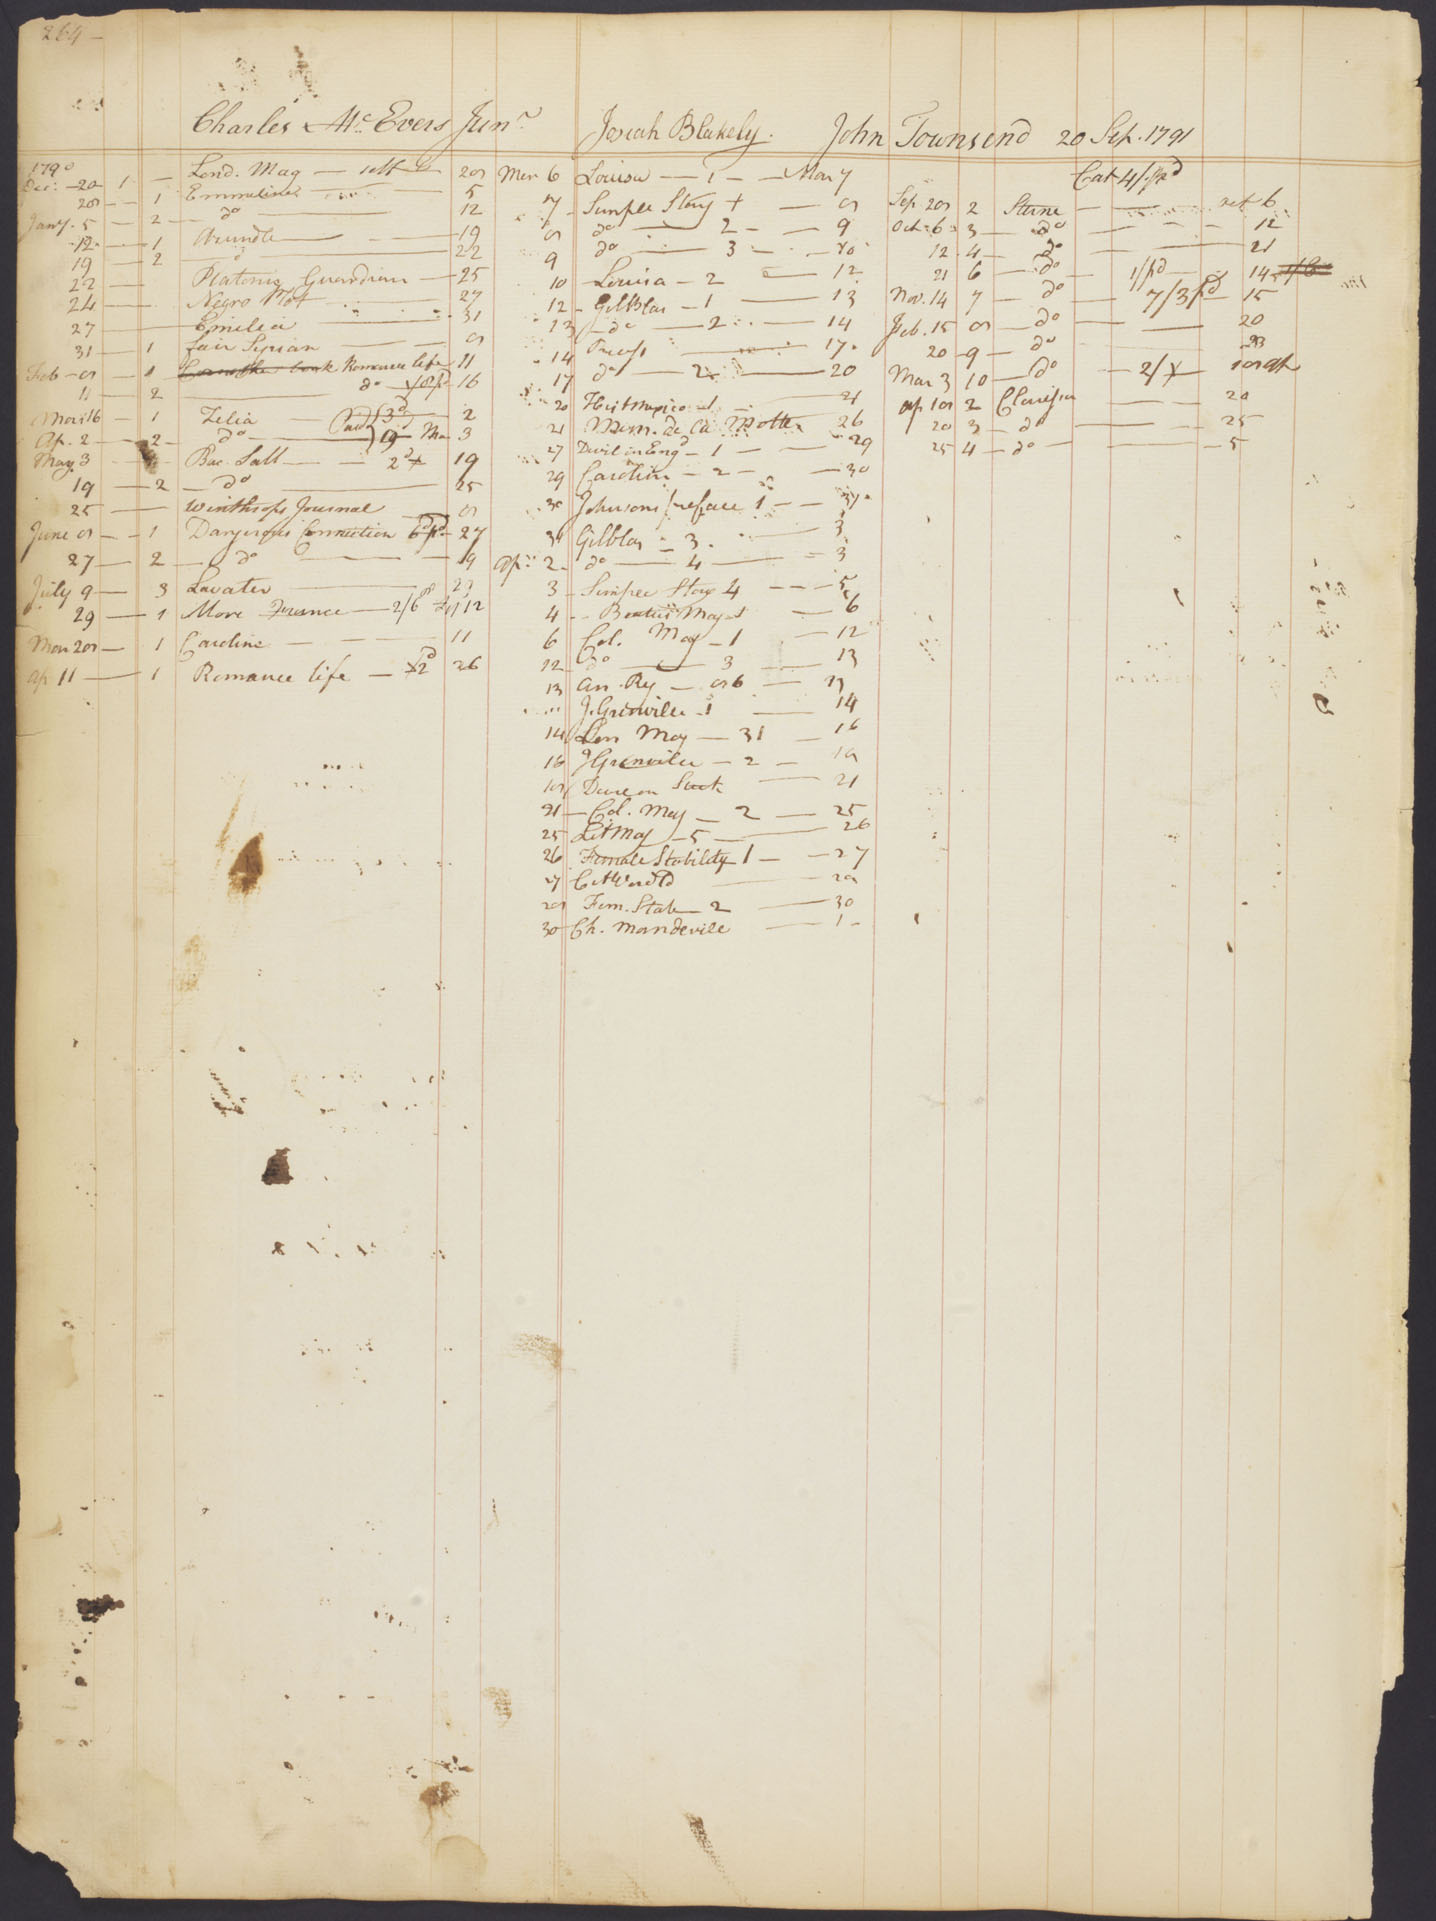 264 —
Charles McEvers Junr.
1790
Dec. 20 — 1 — Lond. Mag — 28
28 — 1 Emmeline — 5
Jany. 5 — 2 — do — 12
12 — 1 Arundle — 19
19 — 2 — 22
22 — Platonic Guardian — 25
24 — Negro — 27
27 — Emilia — 31
31 — 1 Fair Syrian — 8
Feb — 8 — 1 Romance life 11
11 — 2 — do — 16
Mar 16 — 1 Zelia — Paid 3d — 2
Ap. 2 — 2 — do — 3
May 3 — Bac. Sall — 2d — 19
19 — 2 — do — 25
25 — Winthrops Journal — 8
June 8 — 1 Dangerous Connection 6d pd 27
27 — 2 — do — 9
July 9 — 3 Lavater — 29
29 — 1 More France — 2/6 12
Mar 28 — 1 Caroline — 11
Ap 11 — 1 Romance life — 2d 26
Josiah Blakely.
Mar 6 Louisa — 1 — Mar 7
7 — Simple Story + — 8
8 do — 2 — 9
9 do — 3 — 10
10 — Louisa — 2 — 12
12 — Gilblas — 1 — 13
13 — do — 2 — 14
14 — 17
17 do — 2 — 20
20 Hist Mexico 1 — 21
21 Mem. de la Motte 26
27 Devil in Engd — 1 — 29
29 Caroline — 2 — 30
30 Johnsons preface 1 — 31
31 Gilblas — 3 — 3
Ap. 2 — do — 4 — 3
3 — Simple Story 4 — 5
4 — Beatties — 6
6 Col. Mag — 1 — 12
12 — do — 3 — 13
13 An. Reg — 86 — 13
J. Grenville 1 — 14
14 Lon Mag — 31 — 16
16 J Grenville — 2 — 18
18 — 21
21 — Col. Mag — 2 — 25
25 Lit Mag — 5 — 26
26 Female Stability 1 — 27
27 Cit World — 28
28 Fem. Stab — 2 — 30
30 Ch. Mandevile — 1 —
John Townsend 20 Sep. 1791
Cat 4/ pd
Sep 28 2 Sterne — oct 6
Oct. 6 3 — do — 12
12 4 — do — 21
21 6 — do — 1/ pd — 14
Nov. 14 7 — do — 7/3 pd — 15
Feb. 15 8 — do — 20
20 9 — do — 23
Mar 3 10 — do — 2/
Ap 18 2 Clarissa — 20
20 3 — do — 25
25 4 — do — 5